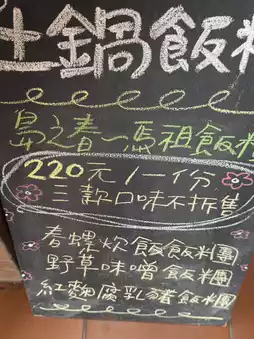 土鍋飯糰
島之春~馬祖飯糰
220元/一份
三款口味不拆售
春螺炊飯飯糰
野草味噌飯糰
紅麴腐乳豬飯糰